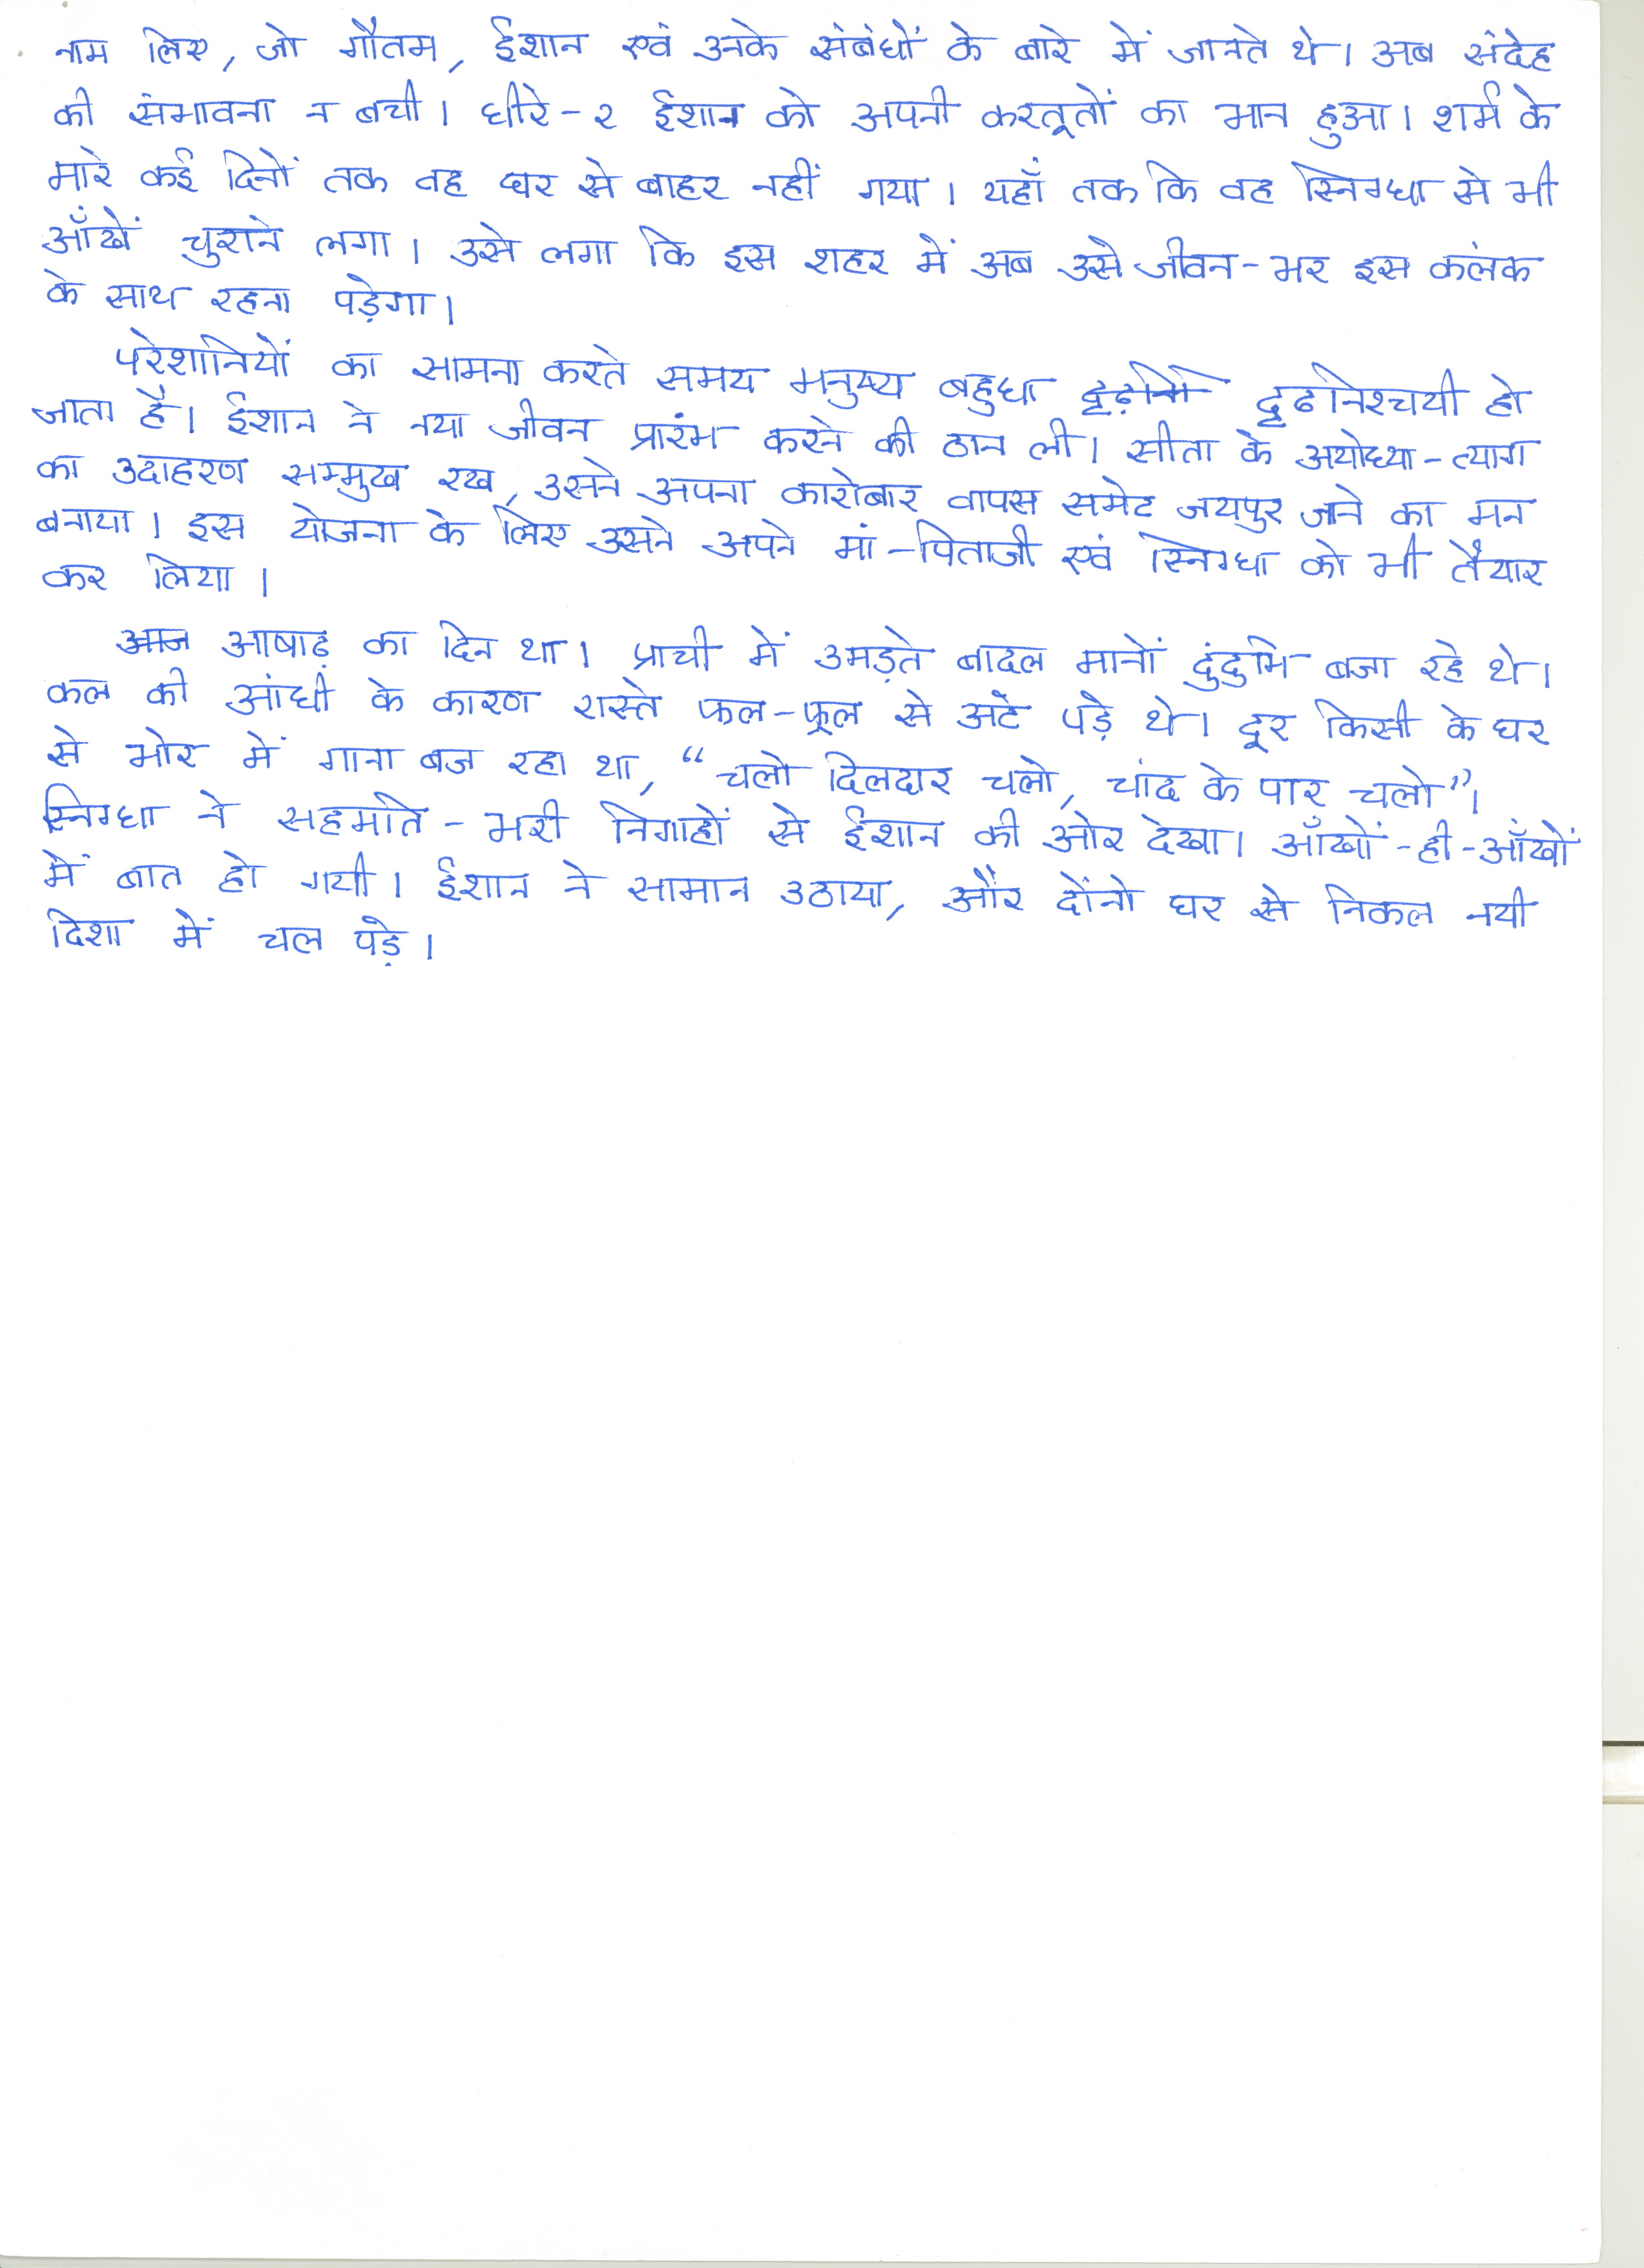 नाम लिए, जो गौतम, ईशान एवं उनके संबंधों के बारे में जानते थे। अब संदेह
की संभावना न बची। धीरे-२ ईशान को अपनी करतूतों का भान हुआ। शर्म के
मारे कई दिनों तक वह घर से बाहर नहीं गया। यहाँ तक कि वह स्निग्धा से भी
आँखें चुराने लगा। उसे लगा कि इस शहर में अब उसे जीवन-भर इस कलंक
के साथ रहना पड़ेगा।
परेशानियों का सामना करते समय मनुष्य बहुधा दृढ़निश्चयी हो
जाता है। ईशान ने नया जीवन प्रारंभ करने की ठान ली। सीता के अयोध्या-त्याग
का उदाहरण सम्मुख रख, उसने अपना कारोबार वापस समेट जयपुर जाने का मन
बनाया। इस योजना के लिए उसने अपने मां-पिताजी एवं स्निग्धा को भी तैयार
कर लिया।
आज आषाढ़ का दिन था। प्राची में उमड़ते बादल मानों दुंदुभि बजा रहे थे।
कल की आंधी के कारण रास्ते फल-फूल से अटे पड़े थे। दूर किसी के घर
से भोर में गाना बज रहा था, “चलो दिलदार चलो, चांद के पार चलो”।
स्निग्धा ने सहमति-भरी निगाहों से ईशान की ओर देखा। आँखों-ही-आँखों
में बात हो गयी। ईशान ने सामान उठाया, और दोंनो घर से निकल नयी
दिशा में चल पड़े।